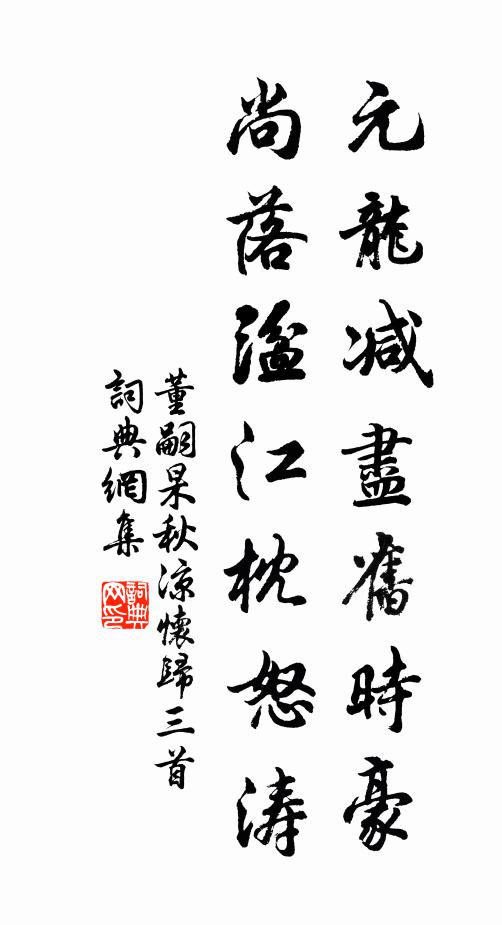 元龍减盡舊時豪
尚落湓江枕怒涛
董嗣杲秋凉懷歸三首
詞典網集
詞典网印